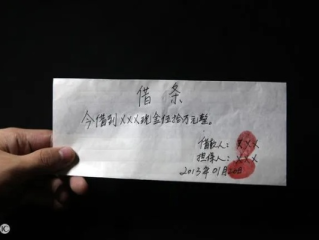 借条
今借到XXX现金伍拾万元整。
借款人：XXX
担保人：XXX
2013年01月